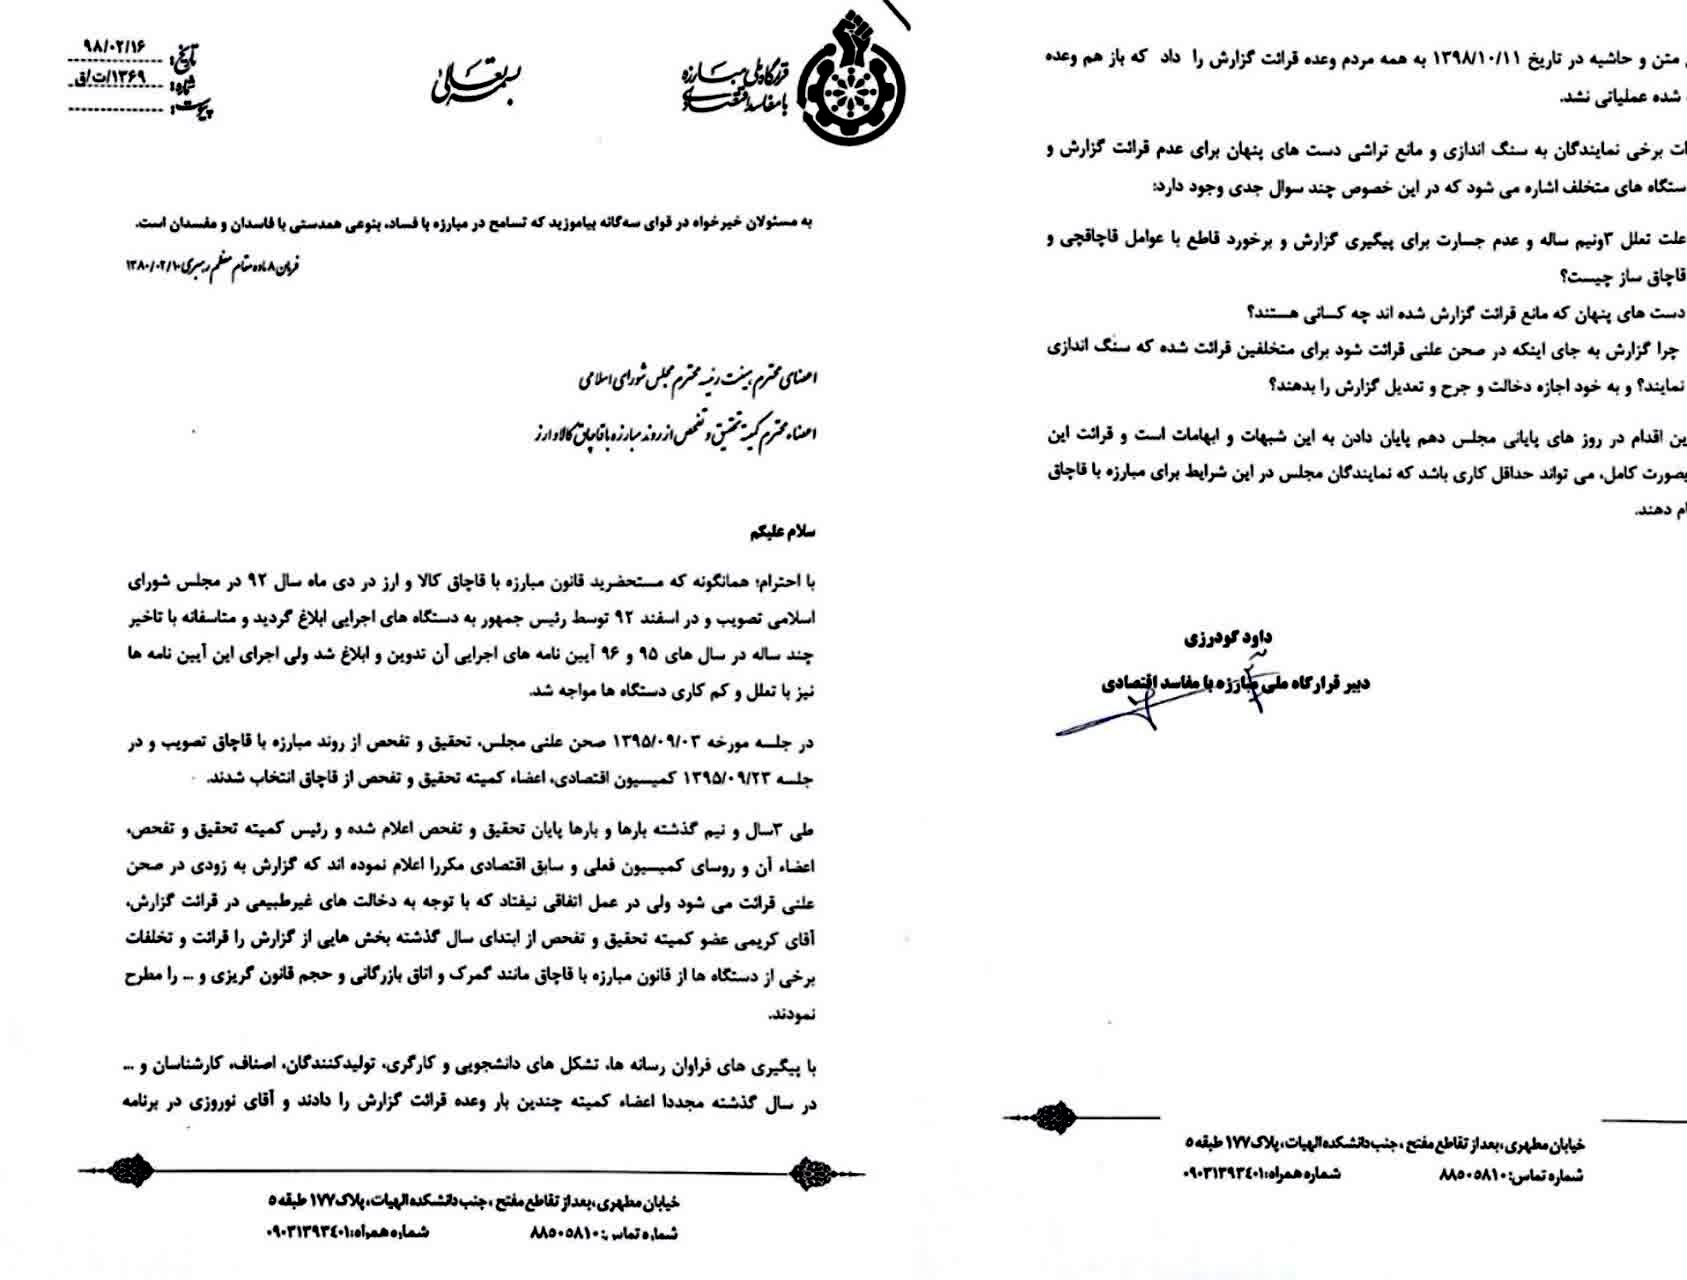 قرارگاه ملی مبارزه
با مفاسد اقتصادی
بسمه تعالی
تاریخ: ۹۸/۰۲/۱۶
شماره: ۱۳۶۹/ت/ق
پیوست:
به مسئولان خیرخواه در قوای سه‌گانه بیاموزید که تسامح در مبارزه با فساد، بنوعی همدستی با فاسدان و مفسدان است.
فرمان ۸ ماده مقام معظم رهبری ۱۳۸۰/۰۲/۱۰
اعضای محترم هیئت رئیسه محترم مجلس شورای اسلامی
اعضاء محترم کمیته تحقیق و تفحص از روند مبارزه با قاچاق کالا و ارز
سلام علیکم
با احترام؛ همانگونه که مستحضرید قانون مبارزه با قاچاق کالا و ارز در دی ماه سال ۹۲ در مجلس شورای
اسلامی تصویب و در اسفند ۹۲ توسط رئیس جمهور به دستگاه های اجرایی ابلاغ گردید و متاسفانه با تاخیر
چند ساله در سال های ۹۵ و ۹۶ آیین نامه های اجرایی آن تدوین و ابلاغ شد ولی اجرای این آیین نامه ها
نیز با تعلل و کم کاری دستگاه ها مواجه شد.
در جلسه مورخه ۱۳۹۵/۰۹/۰۳ صحن علنی مجلس، تحقیق و تفحص از روند مبارزه با قاچاق تصویب و در
جلسه ۱۳۹۵/۰۹/۲۳ کمیسیون اقتصادی، اعضاء کمیته تحقیق و تفحص از قاچاق انتخاب شدند.
طی ۳سال و نیم گذشته بارها و بارها پایان تحقیق و تفحص اعلام شده و رئیس کمیته تحقیق و تفحص،
اعضاء آن و روسای کمیسیون فعلی و سابق اقتصادی مکررا اعلام نموده اند که گزارش به زودی در صحن
علنی قرائت می شود ولی در عمل اتفاقی نیفتاد که با توجه به دخالت های غیرطبیعی در قرائت گزارش،
آقای کریمی عضو کمیته تحقیق و تفحص از ابتدای سال گذشته بخش هایی از گزارش را قرائت و تخلفات
برخی از دستگاه ها از قانون مبارزه با قاچاق مانند گمرک و اتاق بازرگانی و حجم قانون گریزی و ... را مطرح
نمودند.
با پیگیری های فراوان رسانه ها، تشکل های دانشجویی و کارگری، تولیدکنندگان، اصناف، کارشناسان و ...
در سال گذشته مجددا اعضاء کمیته چندین بار وعده قرائت گزارش را دادند و آقای نوروزی در برنامه
خیابان مطهری، بعد از تقاطع مفتح، جنب دانشکده الهیات، پلاک ۱۷۷ طبقه ۵
شماره تماس: ۸۸۵۰۵۸۱۰ شماره همراه: ۰۹۰۳۱۳۹۳۴۰۱
متن و حاشیه در تاریخ ۱۳۹۸/۱۰/۱۱ به همه مردم وعده قرائت گزارش را داد که باز هم وعده
شده عملیاتی نشد.
ات برخی نمایندگان به سنگ اندازی و مانع تراشی دست های پنهان برای عدم قرائت گزارش و
ستگاه های متخلف اشاره می شود که در این خصوص چند سوال جدی وجود دارد:
علت تعلل ۳ونیم ساله و عدم جسارت برای پیگیری گزارش و برخورد قاطع با عوامل قاچاقچی و
قاچاق ساز چیست؟
دست های پنهان که مانع قرائت گزارش شده اند چه کسانی هستند؟
چرا گزارش به جای اینکه در صحن علنی قرائت شود برای متخلفین قرائت شده که سنگ اندازی
نمایند؟ و به خود اجازه دخالت و جرح و تعدیل گزارش را بدهند؟
ین اقدام در روز های پایانی مجلس دهم پایان دادن به این شبهات و ابهامات است و قرائت این
بصورت کامل، می تواند حداقل کاری باشد که نمایندگان مجلس در این شرایط برای مبارزه با قاچاق
ام دهند.
داود گودرزی
دبیر قرارگاه ملی مبارزه با مفاسد اقتصادی
خیابان مطهری، بعد از تقاطع مفتح، جنب دانشکده الهیات، پلاک ۱۷۷ طبقه ۵
شماره تماس: ۸۸۵۰۵۸۱۰ شماره همراه: ۰۹۰۳۱۳۹۳۴۰۱